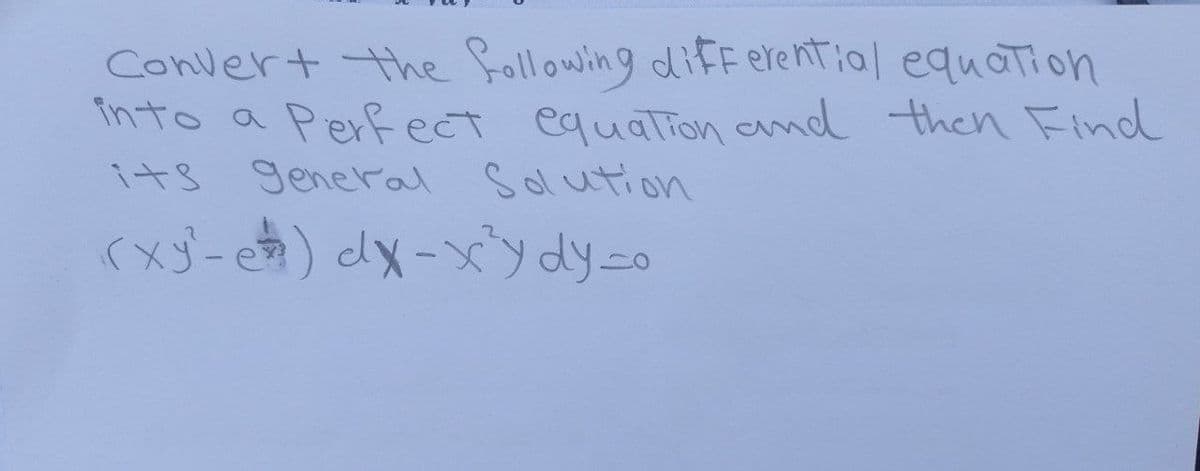 Convert the following differential equation
into a Perfect equation and then Find
its general Solution
(xy²-e^{1/x³}) dx-x²y dy=0